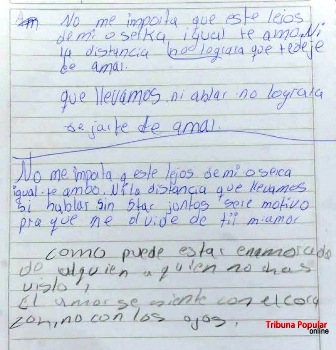 No me importa que este lejos
de mi o serka igual te amo. Ni
la distancia no lograra que te deje
de amar.
que llevamos ni ablar no lograra
dejarte de amar.
No me importa q este lejos de mi o serca
igual te ambo. Ni la distancia que llevamos
Si hablar sin star juntos sere motivo
pra que me olvide de tii mi amor
como puede estar enamorado
do alguien a quien no has
visto,
el amor se siente con el cora
zon, no con los ojos.
Tribuna Popular
online